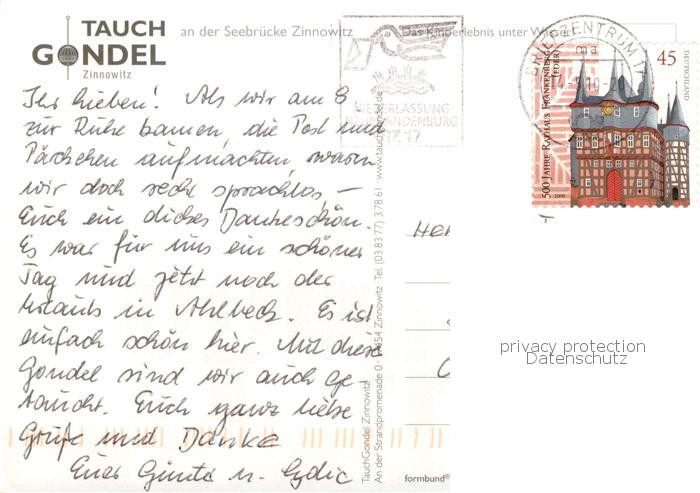 TAUCH
GONDEL
Zinnowitz
an der Seebrücke Zinnowitz
Das Kinoerlebnis unter Wasser
Ihr Lieben! Als wir am 8
zur Ruhe kamen, die Post und
Päckchen aufmachten, waren
wir doch recht sprachlos, –
Euch ein dickes Dankeschön.
Es war für uns ein schöner
Tag und jetzt noch der
Urlaub in Ahlbeck. Es ist
einfach schön hier. Mit diese
Gondel sind wir auch ge-
taucht. Euch ganz liebe
Grüße und Danke
Euer u.
TauchGondel Zinnowitz
An der Strandpromenade 0 · 17454 Zinnowitz Tel. (03 83 77) 3 78 61 www.tauchgondel.de
formbund®
NIEDERLASSUNG
NEUBRANDENBURG
17, 17
BRIEFZENTRUM 17
ma
45
DEUTSCHLAND
500 JAHRE RATHAUS FRANKENBERG
(EDER)
2009
HE
privacy protection
Datenschutz